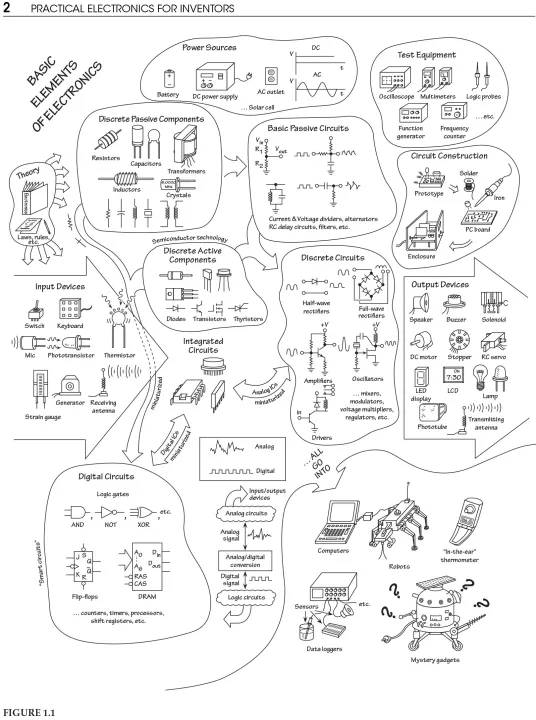 2 PRACTICAL ELECTRONICS FOR INVENTORS
BASIC
ELEMENTS
OF ELECTRONICS
Power Sources
DC
V
t
AC
V
t
Battery
DC power supply
AC outlet
... Solar cell
Test Equipment
Oscilloscope
Multimeters
Logic probes
... etc.
Function
generator
Frequency
counter
Discrete Passive Components
Resistors
Capacitors
Transformers
Inductors
Crystals
Basic Passive Circuits
Vin
R1
Vout
R2
Current & Voltage dividers, alternators
RC delay circuits, filters, etc.
Circuit Construction
Solder
Prototype
Iron
PC board
Enclosure
Theory
Laws, rules,
etc.
Semiconductor technology
Discrete Active
Components
Diodes
Transistors
Thyristors
Integrated
Circuits
Discrete Circuits
Half-wave
rectifiers
Full-wave
rectifiers
+V
+V
Amplifiers
Oscillators
... mixers,
modulators,
voltage multipliers,
regulators, etc.
In
Drivers
Input Devices
Switch
Keyboard
Mic
Phototransistor
Thermistor
Generator
Receiving
antenna
Strain gauge
Output Devices
Speaker
Buzzer
Solenoid
DC motor
Stopper
RC servo
LED
display
7:30
LCD
Lamp
Phototube
Transmitting
antenna
miniaturized
Analog ICs
miniaturized
Digital ICs
miniaturized
Analog
Digital
... ALL
GO
INTO
Digital Circuits
Logic gates
AND
,
NOT
,
XOR
,
etc.
"Smart circuits"
J
S
Q
K
R
Q
Flip-flops
A0
A8
RAS
CAS
Din
Dout
DRAM
... counters, timers, processors,
shift registers, etc.
Input/output
devices
Analog circuits
Analog
signal
Analog/digital
conversion
Digital
signal
Logic circuits
Computers
Robots
"In-the-ear"
thermometer
Sensors
etc.
Data loggers
?
?
?
?
Mystery gadgets
FIGURE 1.1